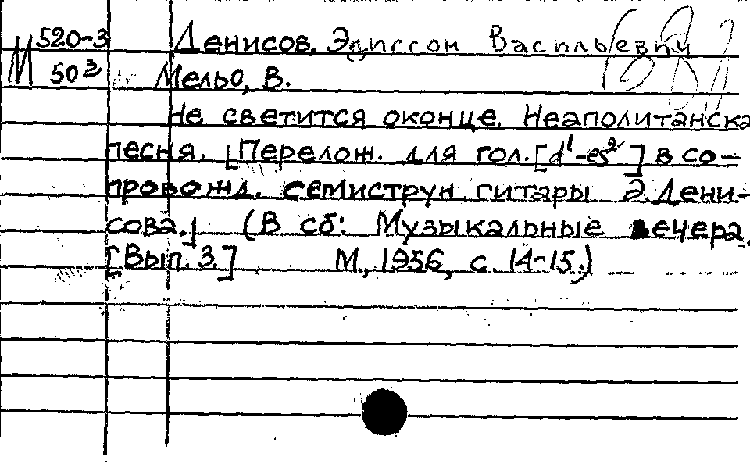 М 520-3 Денисов, Эдиссон Васильевич
503 Мельо, В.
Не светится оконце. Неаполитанска
песня. [Перелож. для гол. [d¹-es²] в со-
провожд. семиструн. гитары Э. Дени-
сова.] (В сб: Музыкальные вечера.
[Вып. 3.] М., 1956, с. 14-15.)